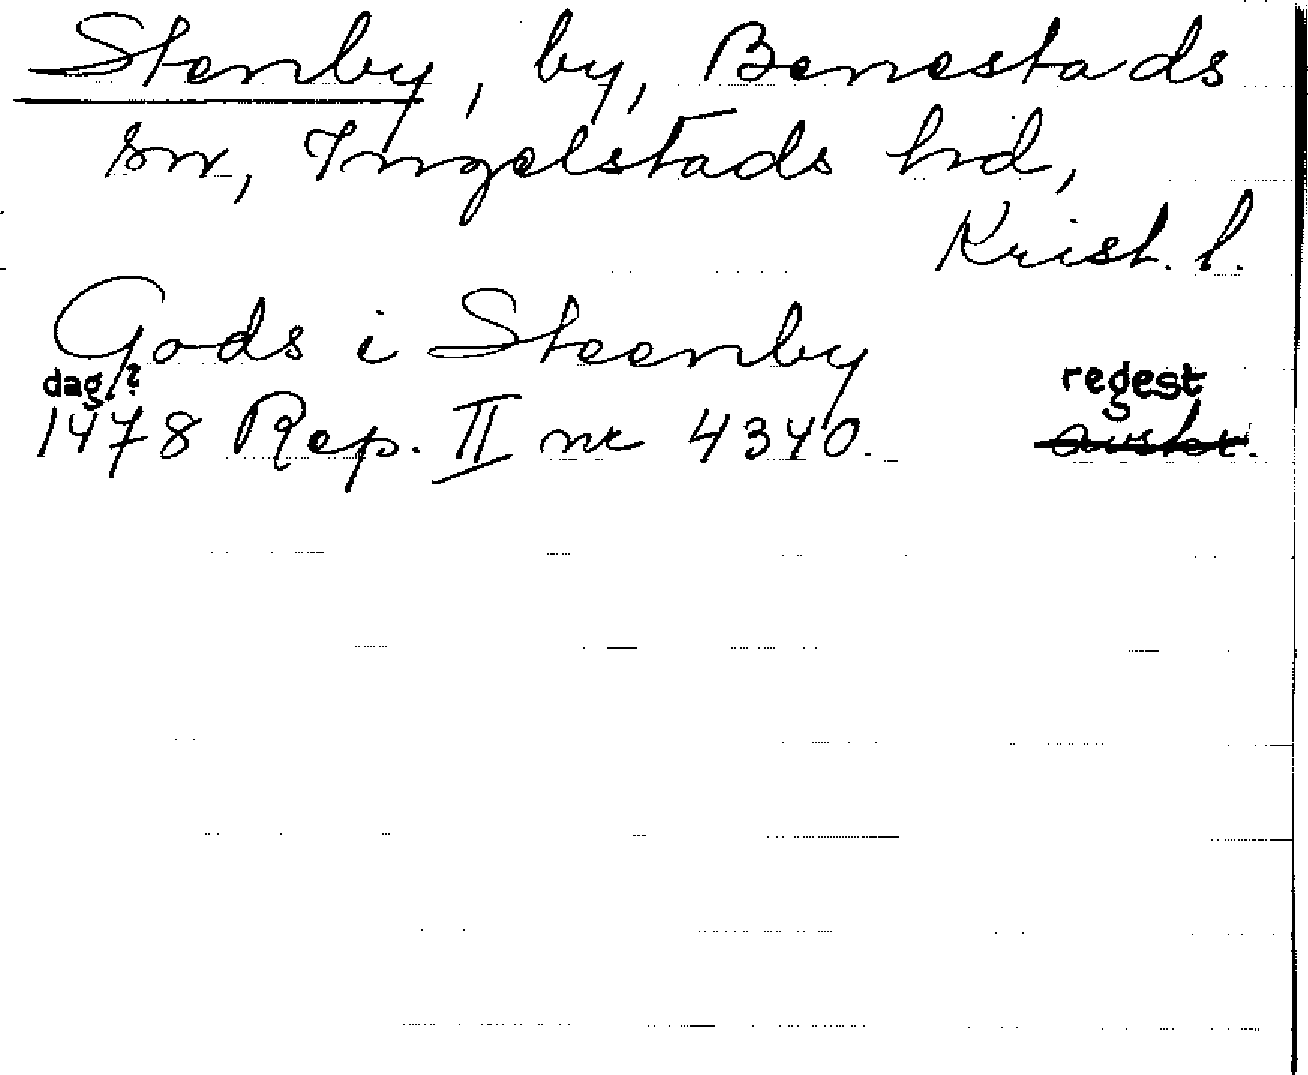 Stenby, by, Benestads
sn, Ingelstads hd,
Krist. l.
Gods i Steenby
dag?
1478 Rep. II nr 4340.
regest
avskr.